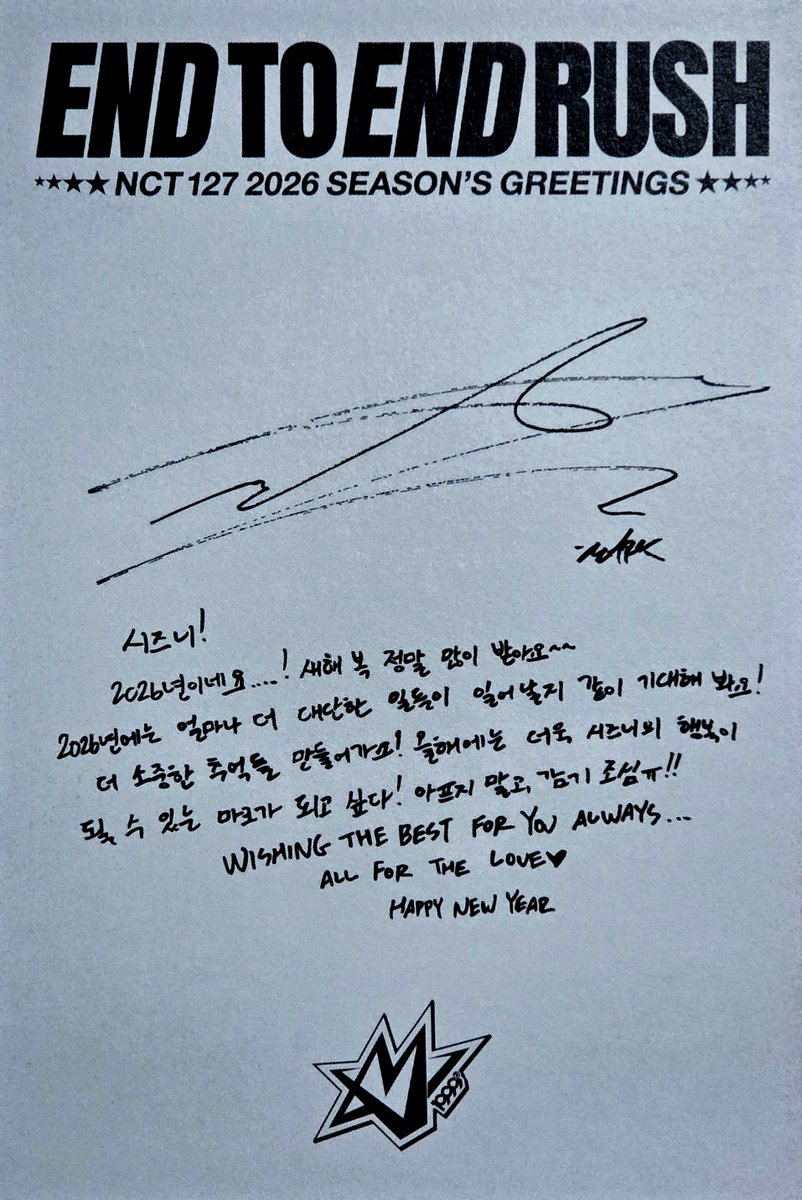 END TO END RUSH
★★★★ NCT 127 2026 SEASON'S GREETINGS ★★★★
MARK
시즈니!
2026년이네요....! 새해 복 정말 많이 받아요~~
2026년에는 얼마나 더 대단한 일들이 일어날지 같이 기대해 봐요!
더 소중한 추억들 만들어가요! 올해에는 더욱 시즈니의 행복이
될 수 있는 마크가 되고 싶다! 아프지 말고, 감기 조심ㅠ!!
WISHING THE BEST FOR YOU ALWAYS...
ALL FOR THE LOVE♥
HAPPY NEW YEAR
M
1999